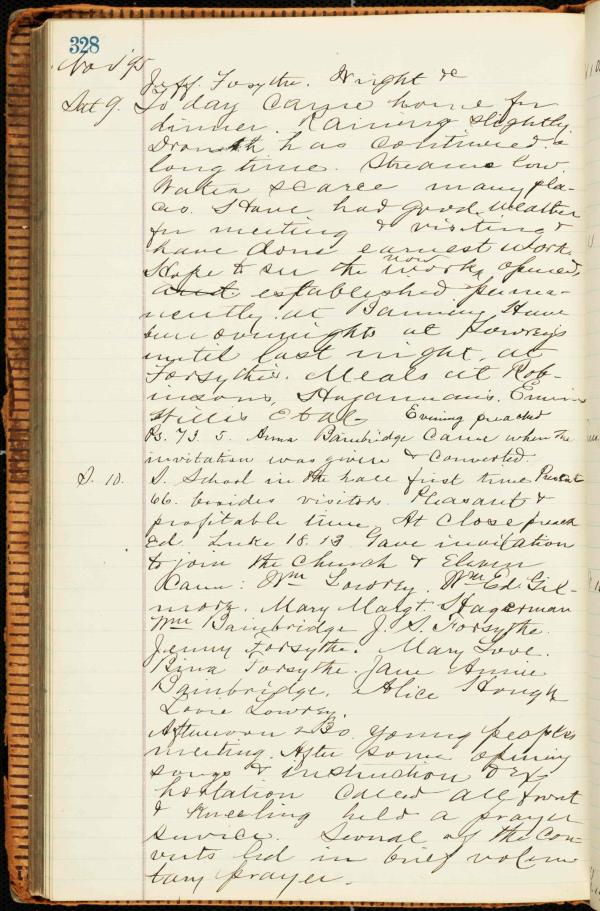 328
Nov '95
Jeff. Forsythe. Wright &c
Sat 9. To day came home for
dinner. Raining slightly.
Drouth has continued a
long time. Streams low.
Water scarce many pla-
ces. Have had good weather
for meeting & visiting &
have done earnest work.
Hope to see the work now opened
and established perma-
nently at Banning. Have
been overnight at Lowrey's
until last night, at
Forsythes. Meals at Rob-
insons, Hagermans, Erwin
Willis et al. Evening preached
Ps. 73. 5. Anna Bainbridge came when the
invitation was given & converted.
S. 10. S. School in the hall first time. Present
66. besides visitors. Pleasant &
profitable time. At close preach
ed Luke 18. 13. Gave invitation
to join the church & Eleven
Came: Wm Lowrey. Wm Ed. Gil-
more. Mary Margt. Hagerman
Wm Bainbridge J. S. Forsythe.
Jenny Forsythe. Mary Love.
Rina Forsythe. Jane Annie
Bainbridge. Alice Hough
Lovie Lowrey.
Afternoon young peoples
meeting. After some opening
songs & instruction & Ex
hortation called all front
& kneeling held a prayer
service. Several of the con-
verts led in brief volun
tary prayer.